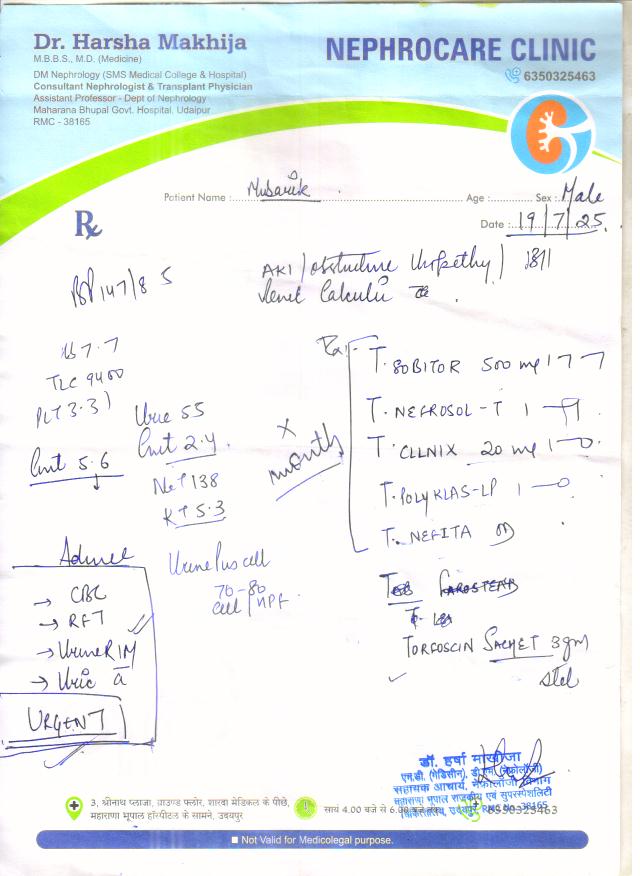 Dr. Harsha Makhija
M.B.B.S., M.D. (Medicine)
DM Nephrology (SMS Medical College & Hospital)
Consultant Nephrologist & Transplant Physician
Assistant Professor - Dept of Nephrology
Maharana Bhupal Govt. Hospital, Udaipur
RMC - 38165
NEPHROCARE CLINIC
6350325463
Patient Name : Mubarik
Age : Sex : Male
Date : 19/7/25
Rx
BP 147/8
AKI / obstructive Uropathy /
Renal Calculi
7.7
TLC 9400
PLT 3.31
Creat 5.6
Urea 55
Creat 2.4
Na+ 138
K+ 5.3
Urine Pus cell
70-80
cell/HPF
x
month
Rx:-
T. SOBITOR 500 mg 1
T. NEFROSOL-T 1
T. CLLNIX 20 mg 1-0
T. POLYKLAS-LP 1-0
T. NEFITA OD
TORFOSCIN SACHET 3gm
Advice
→ CBC
→ RFT
→ Urine R/M
→ Uric a
URGENT
डॉ. हर्षा माखीजा
एम.डी. (मेडिसीन), डी.एम. (नेफ्रोलॉजी)
सहायक आचार्य, नेफ्रोलॉजी विभाग
महाराणा भूपाल राजकीय एवं सुपरस्पेशलिटी
चिकित्सालय, उदयपुर, RMC No. 38165
3, श्रीनाथ प्लाजा, ग्राउण्ड फ्लोर, शारदा मेडिकल के पीछे,
महाराणा भूपाल हॉस्पीटल के सामने, उदयपुर
सायं 4.00 बजे से 6.00 बजे तक
6350325463
Not Valid for Medicolegal purpose.